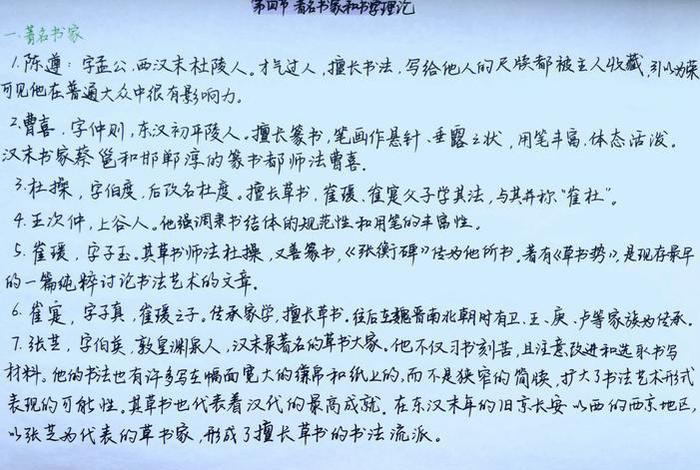 第四节 著名书家和书学理论
一.著名书家
1.陈遵：字孟公，西汉末杜陵人。才气过人，擅长书法，写给他人的尺牍都被主人收藏，引以为荣
可见他在普通大众中很有影响力。
2.曹喜，字仲则，东汉初平陵人。擅长篆书，笔画作悬针、垂露之状，用笔丰富，体态活泼。
汉末书家蔡邕和邯郸淳的篆书都师法曹喜。
3.杜操，字伯度，后改名杜度。擅长草书，崔瑗、崔寔父子学其法，与其并称“崔杜”。
4.王次仲，上谷人。他强调隶书结体的规范性和用笔的丰富性。
5.崔瑗，字子玉。其草书师法杜操，又善篆书，《张衡碑》传为他所书。著有《草书势》，是现存最早
的一篇纯粹讨论书法艺术的文章。
6.崔寔，字子真，崔瑗之子。传承家学，擅长草书。往后在魏晋南北朝时有卫、王、庾、卢等家族为传承。
7.张芝，字伯英，敦皇渊泉人，汉末最著名的草书大家。他不仅习书刻苦，且注意改进和选取书写
材料。他的书法也有许多写在幅面宽大的缣帛和纸上的，而不是狭窄的简牍，扩大了书法艺术形式
表现的可能性。其草书也代表着汉代的最高成就。在东汉末年的旧京长安以西的西京地区，
以张芝为代表的草书家，形成了擅长草书的书法流派。